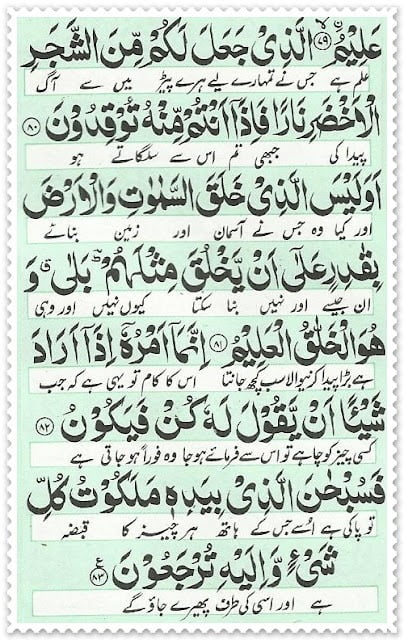 عَلِيْمُ ۙ﴿۷۹﴾ الَّذِیْ جَعَلَ لَكُمْ مِّنَ الشَّجَرِ
علم ہے جس نے تمہارے لیے ہرے پیڑ میں سے آگ
الْاَخْضَرِ نَارًا فَاِذَاۤ اَنْتُمْ مِّنْهُ تُوْقِدُوْنَ ﴿۸۰﴾
پیدا کی جبھی تم اس سے سلگاتے ہو
اَوَلَیْسَ الَّذِیْ خَلَقَ السَّمٰوٰتِ وَالْاَرْضَ
اور کیا وہ جس نے آسمان اور زمین بنائے
بِقٰدِرٍ عَلٰۤی اَنْ یَّخْلُقَ مِثْلَهُمْ ؕ بَلٰی ۗ وَ
ان جیسے اور نہیں بنا سکتا کیوں نہیں اور وہی
هُوَ الْخَلّٰقُ الْعَلِیْمُ ﴿۸۱﴾ اِنَّمَاۤ اَمْرُهٗۤ اِذَاۤ اَرَادَ
ہے بڑا پیدا کرنیوالا سب کچھ جانتا اس کا کام تو یہی ہے کہ جب
شَیْـًٔا اَنْ یَّقُوْلَ لَهٗ كُنْ فَیَكُوْنُ ﴿۸۲﴾
کسی چیز کو چاہے تو اس سے فرمائے ہو جا وہ فوراً ہو جاتی ہے
فَسُبْحٰنَ الَّذِیْ بِیَدِهٖ مَلَكُوْتُ كُلِّ
تو پاکی ہے اُسے جس کے ہاتھ ہر چیز کا قبضہ
شَیْءٍ وَّ اِلَیْهِ تُرْجَعُوْنَ ﴿۸۳﴾ ع
ہے اور اسی کی طرف پھیرے جاؤ گے